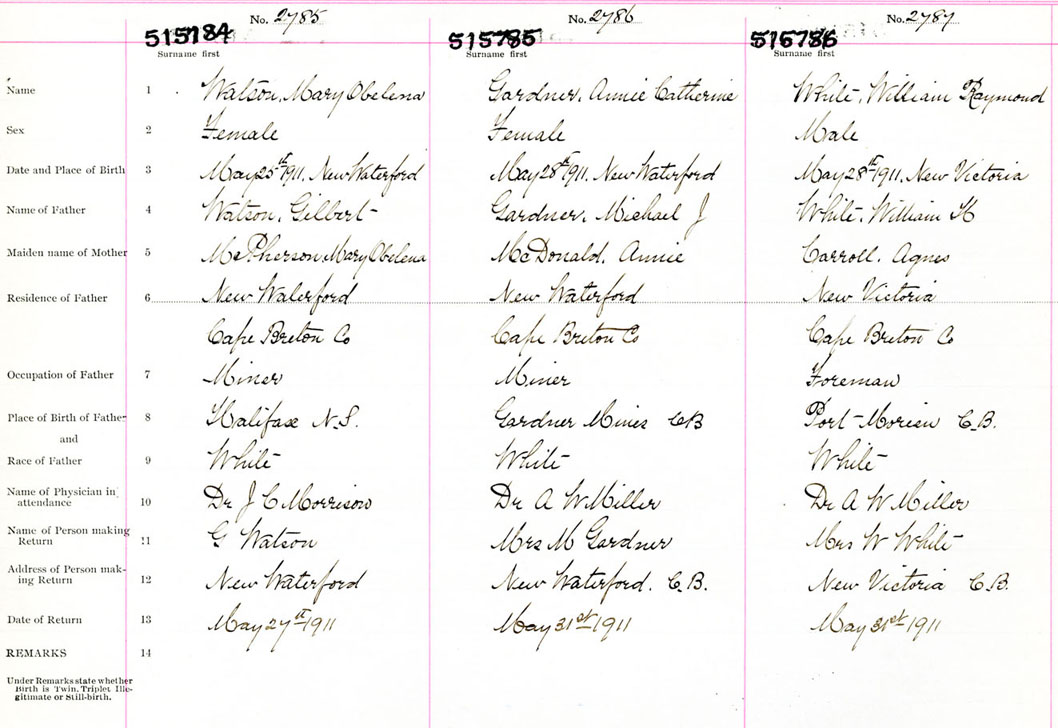 No. 2785 No. 2786 No. 2787
515784 515785 515786
Surname first Surname first Surname first
Name 1 Watson, Mary Obelena Gardner, Annie Catherine White, William Raymond
Sex 2 Female Female Male
Date and Place of Birth 3 May 25th 1911, New Waterford May 28th 1911, New Waterford May 28th 1911, New Victoria
Name of Father 4 Watson, Gilbert Gardner, Michael J White, William H
Maiden name of Mother 5 McPherson, Mary Obelena McDonald, Annie Carroll, Agnes
Residence of Father 6 New Waterford New Waterford New Victoria
Cape Breton Co Cape Breton Co Cape Breton Co
Occupation of Father 7 Miner Miner Foreman
Place of Birth of Father 8 Halifax N.S. Gardner Mines CB Port-Morien C.B.
and
Race of Father 9 White White White
Name of Physician in
attendance 10 Dr J C Morrison Dr A W Miller Dr A W Miller
Name of Person making
Return 11 G Watson Mrs M Gardner Mrs W White
Address of Person mak-
ing Return 12 New Waterford New Waterford, C.B. New Victoria C.B.
Date of Return 13 May 27th 1911 May 31st 1911 May 31st 1911
REMARKS 14
Under Remarks state whether
Birth is Twin, Triplet Ille-
gitimate or Still-birth.